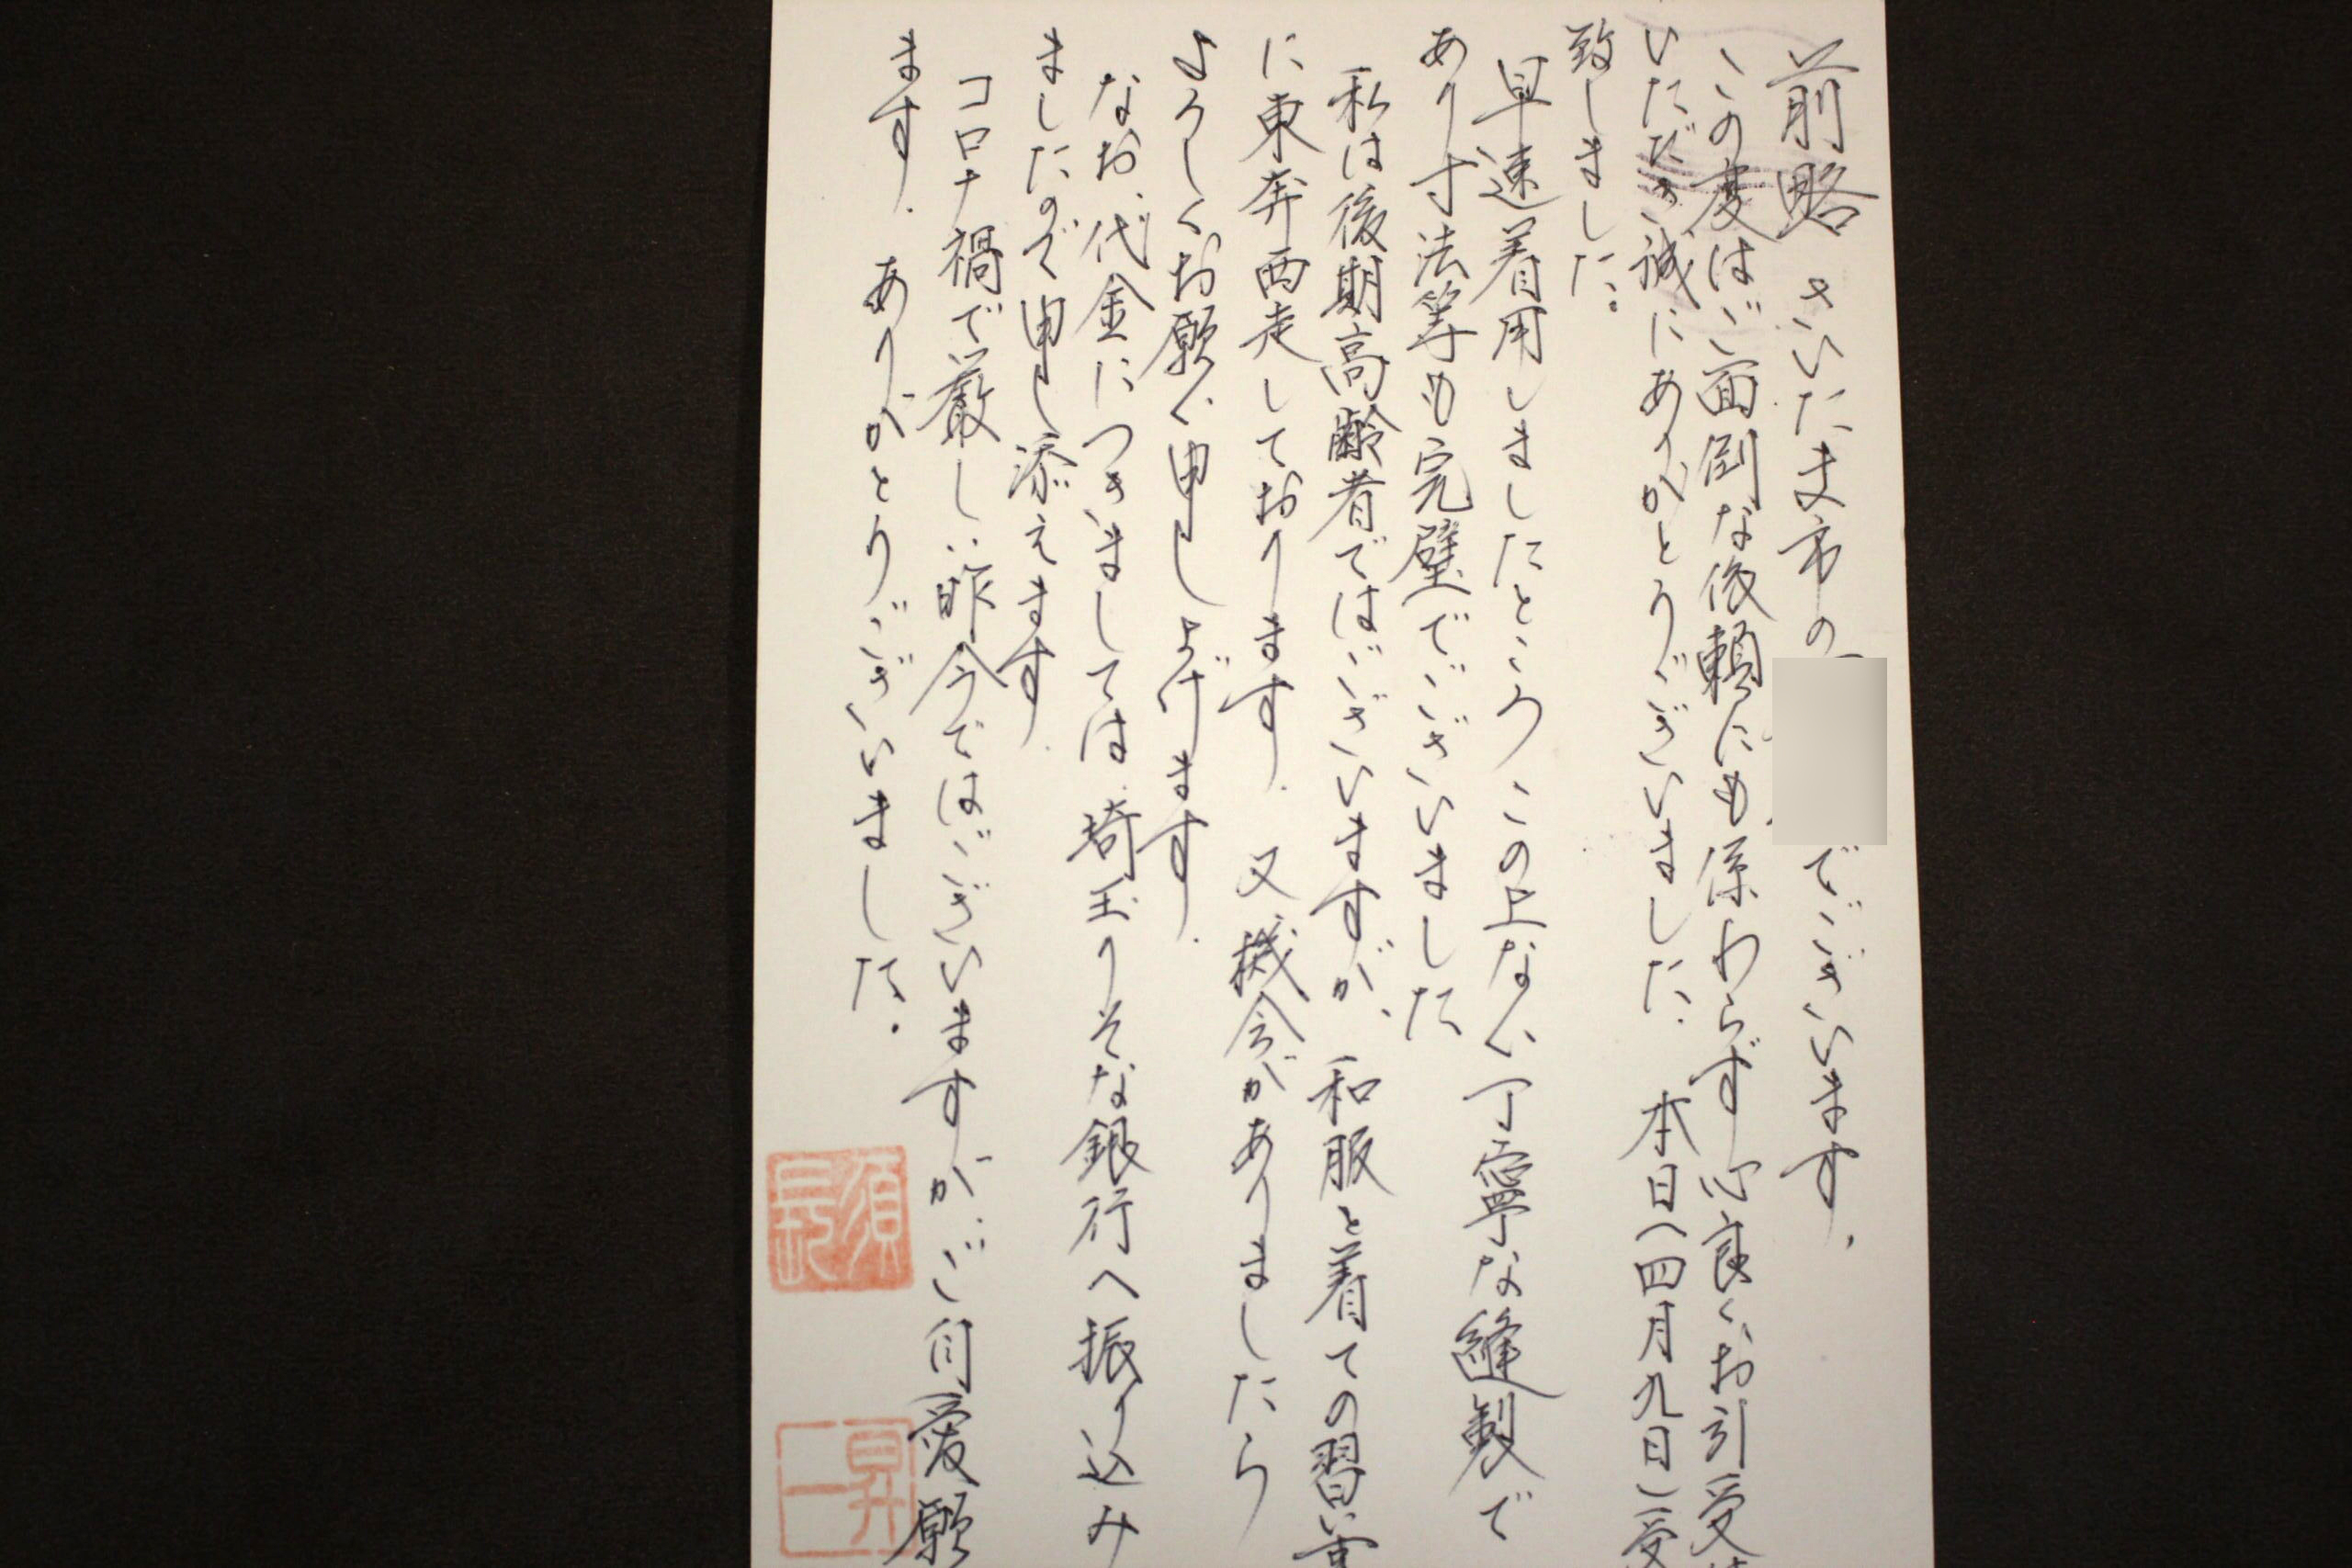 前略 さいたま市の
でございます.
この度はご面倒な依頼にも係わらず心良くお引受
いただき誠にありがとうございました. 本日(四月九日)受
致しました.
早速着用しましたところこの上ない丁寧な縫製で
あり寸法等も完璧でございました
私は後期高齢者ではございますが、和服を着ての習い事
に東奔西走しております. 又、機会がありましたら
よろしくお願い申しあげます.
なお、代金につきましては、埼玉りそな銀行へ振り込み
ましたので申し添えます.
コロナ禍で厳しい昨今ではございますが、ご自愛願
ます. ありがとうございました.
須長
昇一